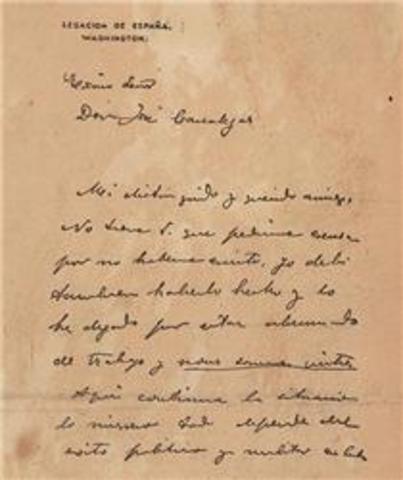 LEGACION DE ESPAÑA.
WASHINGTON.
Exmo Señor
Don José Canalejas
Mi distinguido y querido amigo,
No tiene V. que pedirme excusas
por no haberme escrito, yo debí
tambien haberlo hecho y lo
he dejado por estar abrumado
de trabajo y nous sommes quittes
Aqui continua la situacion
lo mismo. Todo depende del
exito politico y militar en Cuba